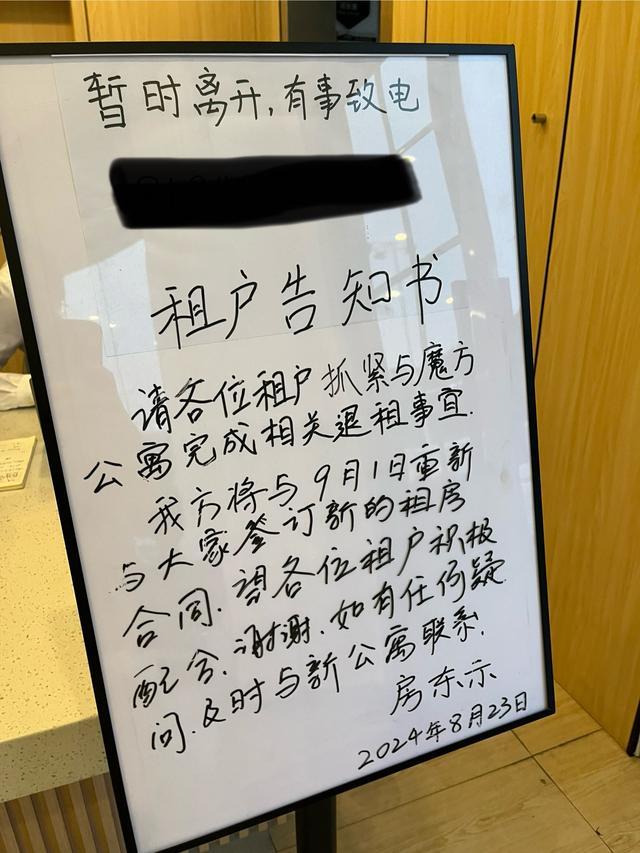 暂时离开,有事致电
租户告知书
请各位租户抓紧与魔方
公寓完成相关退租事宜.
我方将与9月1日重新
与大家签订新的租房
合同.请各位租户积极
配合.谢谢.如有任何疑
问.及时与新公寓联系.
房东示
2024年8月23日